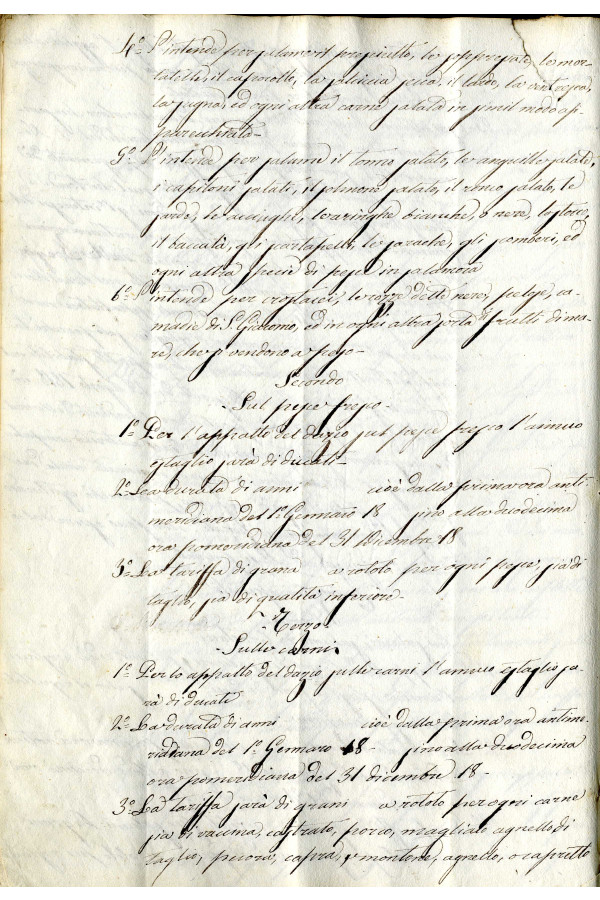 4.° S'intende per salame il prosciutto, le soppressate, le mor-
talelle, il capocollo, la salsiccia secca, il lardo, la ventresca,
la sugna, ed ogni altra carne salata in simil modo ap-
parecchiata-
5.° S'intende per salume il tonno salato, le anguille salate,
i capitoni salati, il salmone salato, il salato, le
sarde, le acciughe, le aringhe bianche, o nere, lo stocco,
il baccalà, gli le gli ed
ogni altra specie di pesce in salamoia
6.° S'intende per crostacei, le cozze dette nere,
di S. Giacomo, ed in ogni altra sorta di frutti di ma-
re, che si vendono a peso-
Secondo
-Sul pesce fresco-
1.° Per l'appalto del dazio sul pesce fresco l'annuo
estaglio sarà di ducati-
2.° La durata di anni cioè dalla prima ora anti-
meridiana del 1.° Gennaro 18 sino alla duodecima
ora pomeridiana del 31 Dicembre 18
3.° La tariffa di grana a rotolo per ogni pesce, sia di
taglio, sia di qualità inferiore-
-Terzo-
-Sulle carni-
1.° Per lo appalto del dazio sulle carni l'annuo estaglio sa-
rà di ducati
2.° La durata di anni cioè dalla prima ora antime-
ridiana del 1.° Gennaro 18- sino alla duodecima
ora pomeridiana del 31 dicembre 18-
3.° La tariffa sarà di grani a rotolo per ogni carne
sia di vaccina, castrato, porco, magliato agnello di
taglio, pecora, capra, montone, agnello, o capretto